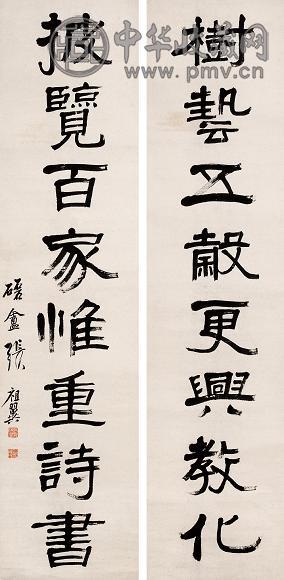 中华收藏网
www.pmv.cn
樹藝五穀更興教化
披覽百家惟重詩書
磊盦張祖翼